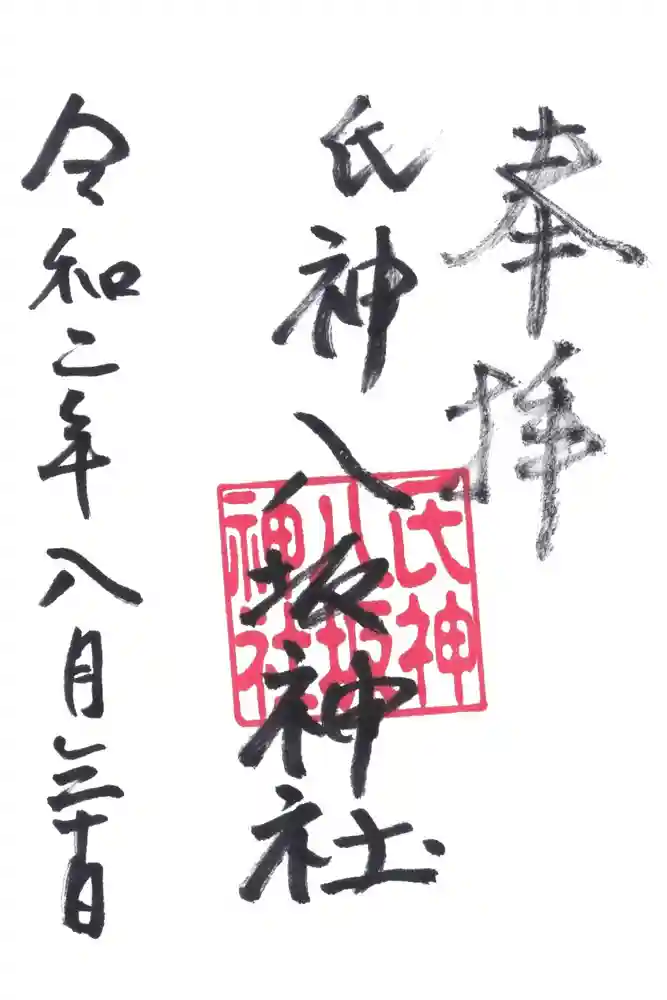 奉拝
氏神八坂神社
氏神
八坂
神社
令和二年八月三十日